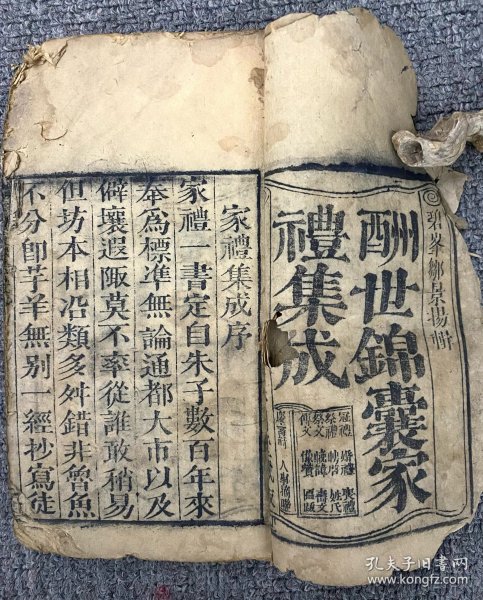 碧峯鄒景揚輯
酬世錦囊家
禮集成
冠禮 婚禮 喪禮
祭禮
祭文
家禮集成序
家禮一書定自朱子數百年來
奉為標準無論通都大市以及
僻壤遐陬莫不率從誰敢稍易
但坊本相沿類多舛錯非魯魚
不分即芋羊無別一經抄寫徒
孔夫子旧书网
www.kongfz.com